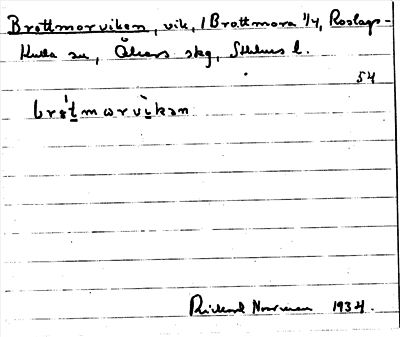 Brottmorviken, vik, /Brottmora 1/4, Roslags-
Kulla sn, Åkers skg, Sthlms l.
54
brot̀mωrvìkən
Rickard Norrman 1934.